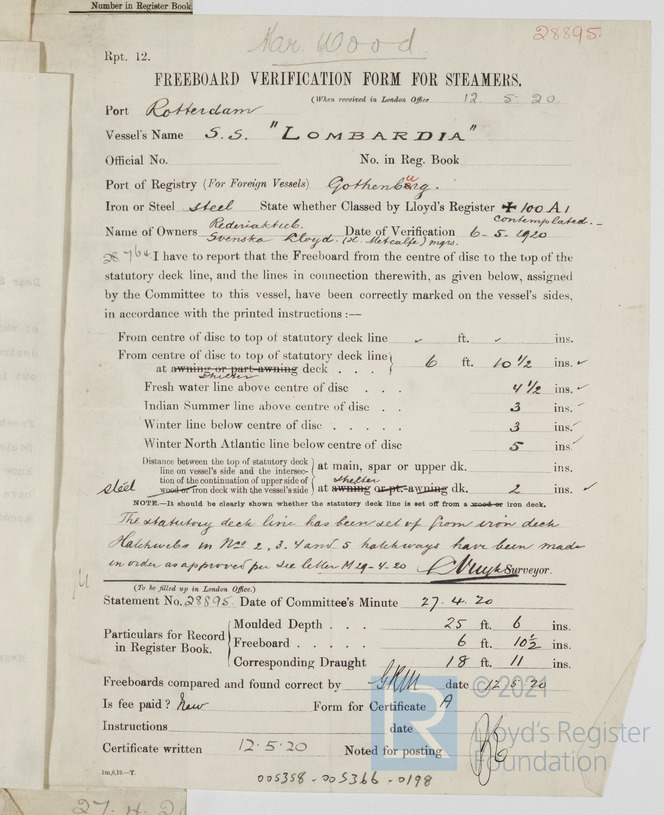 Number in Register Book
Mr. Wood.
28895.
Rpt. 12.
FREEBOARD VERIFICATION FORM FOR STEAMERS.
(When received in London Office 12. 5. 20.
Port Rotterdam
Vessel's Name S.S. "LOMBARDIA"
Official No. No. in Reg. Book
Port of Registry (For Foreign Vessels) Gothenburg.
Iron or Steel steel State whether Classed by Lloyd's Register ✠ 100 A1
contemplated.
Name of Owners Rederiaktieb. Date of Verification 6-5-1920
Svenska Lloyd. (H. Metcalfe) mgrs.
I have to report that the Freeboard from the centre of disc to the top of the
statutory deck line, and the lines in connection therewith, as given below, assigned
by the Committee to this vessel, have been correctly marked on the vessel's sides,
in accordance with the printed instructions :—
From centre of disc to top of statutory deck line ✓ ft. ✓ ins.
From centre of disc to top of statutory deck line
at awning or part-awning deck . . . 6 ft. 10 1/2 ins. ✓
shelter
Fresh water line above centre of disc . . . 4 1/2 ins. ✓
Indian Summer line above centre of disc . . 3 ins. ✓
Winter line below centre of disc . . . . . 3 ins. ✓
Winter North Atlantic line below centre of disc 5 ins. ✓
Distance between the top of statutory deck
line on vessel's side and the intersec-
tion of the continuation of upper side of
wood or iron deck with the vessel's side
at main, spar or upper dk. ins.
steel
shelter
at awning or pt.-awning dk. 2 ins. ✓
NOTE.—It should be clearly shown whether the statutory deck line is set off from a wood or iron deck.
The statutory deck line has been set of from iron deck
Hatchwebs in Nos 2, 3, 4 and 5 hatchways have been made
in order as approved per see letter M 29-4-20 Surveyor.
(To be filled up in London Office.)
Statement No. 28895. Date of Committee's Minute 27. 4. 20
Particulars for Record
in Register Book.
Moulded Depth . . . 25 ft. 6 ins.
Freeboard . . . . . 6 ft. 10½ ins.
Corresponding Draught 18 ft. 11 ins.
Freeboards compared and found correct by GRM date 12.5.20
Is fee paid? New Form for Certificate A
Instructions date
Certificate written 12.5.20 Noted for posting
1m,8,19.—T.
005358-005366-0198
© 2021
Lloyd's Register
Foundation
LR